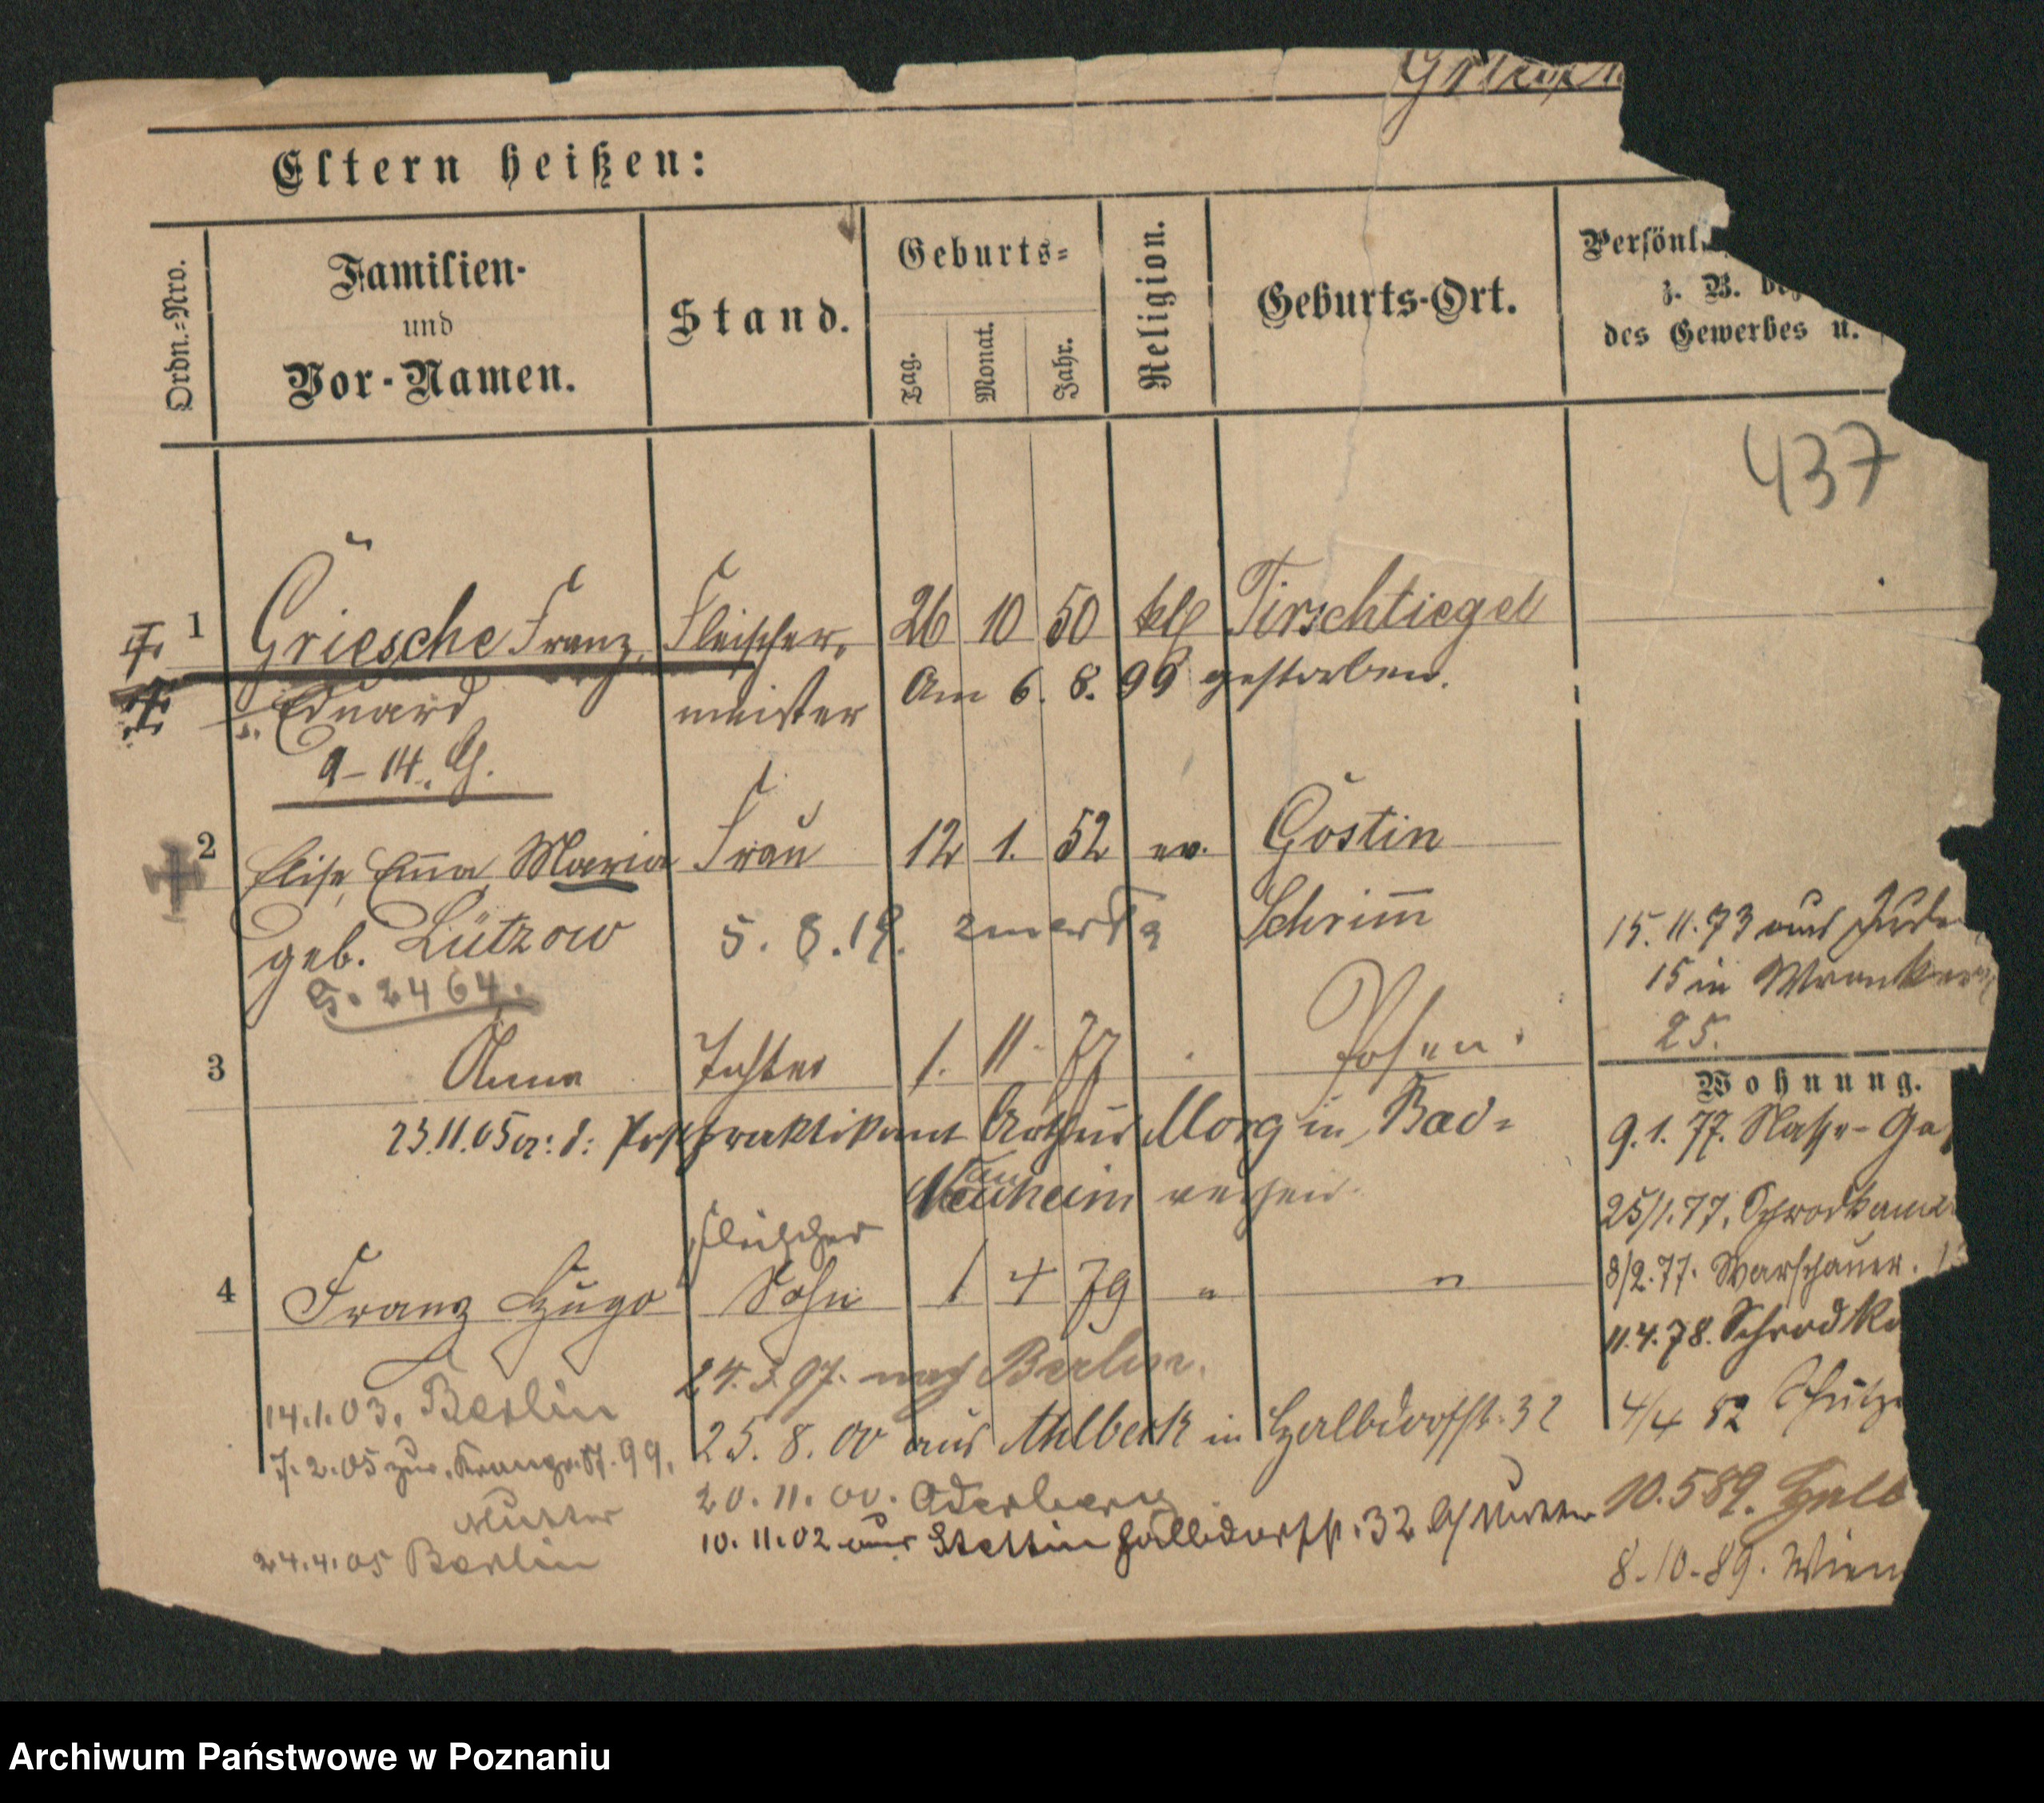 Eltern heißen:
Ordn.-Nro.
Familien-
und
Vor-Namen.
Stand.
Geburts-
Tag.
Monat.
Jahr.
Religion.
Geburts-Ort.
Persönl
z. B.
des Gewerbes u.
437
1 Griesche Franz, Fleischer- 26 10 50 kth Tirschtiegel
Eduard meister Am 6. 8. 99 gestorben.
9-14. G.
2 Elise, Em̅a Maria Frau 12 1. 52 ev. Gostin
geb. Lützow 5. 8. 19. Schrim̅
G. 2464.
15. 11. 73 aus
15 in Wronker
25.
3 Anna Tochter 1. 11. 77 Posen.
23.11.05 Postpraktikant Arthur Morg in Bad-
Nauheim
Wohnung.
9. 1. 77. Nasse-Ga
25/1. 77. Schrodkamar
8/2. 77. Warschauer.
11. 4. 78. Schrodka
4/4 82 Schütz
10. 5 89. Halb
8. 10. 89. Wien
Fleischer
4 Franz Hugo Sohn 1 4 79 " "
24. 3. 97. nach Berlin.
25. 8. 00 aus Ahlbeck in Halbdorfstr. 32
20. 11. 00. Oderberg
10. 11. 02 aus Stettin Halbdorfstr. 32 b/ Mutter
14. 1. 03. Berlin
7. 2. 05 zur. 99.
Mutter
24. 4. 05 Berlin
Archiwum Państwowe w Poznaniu